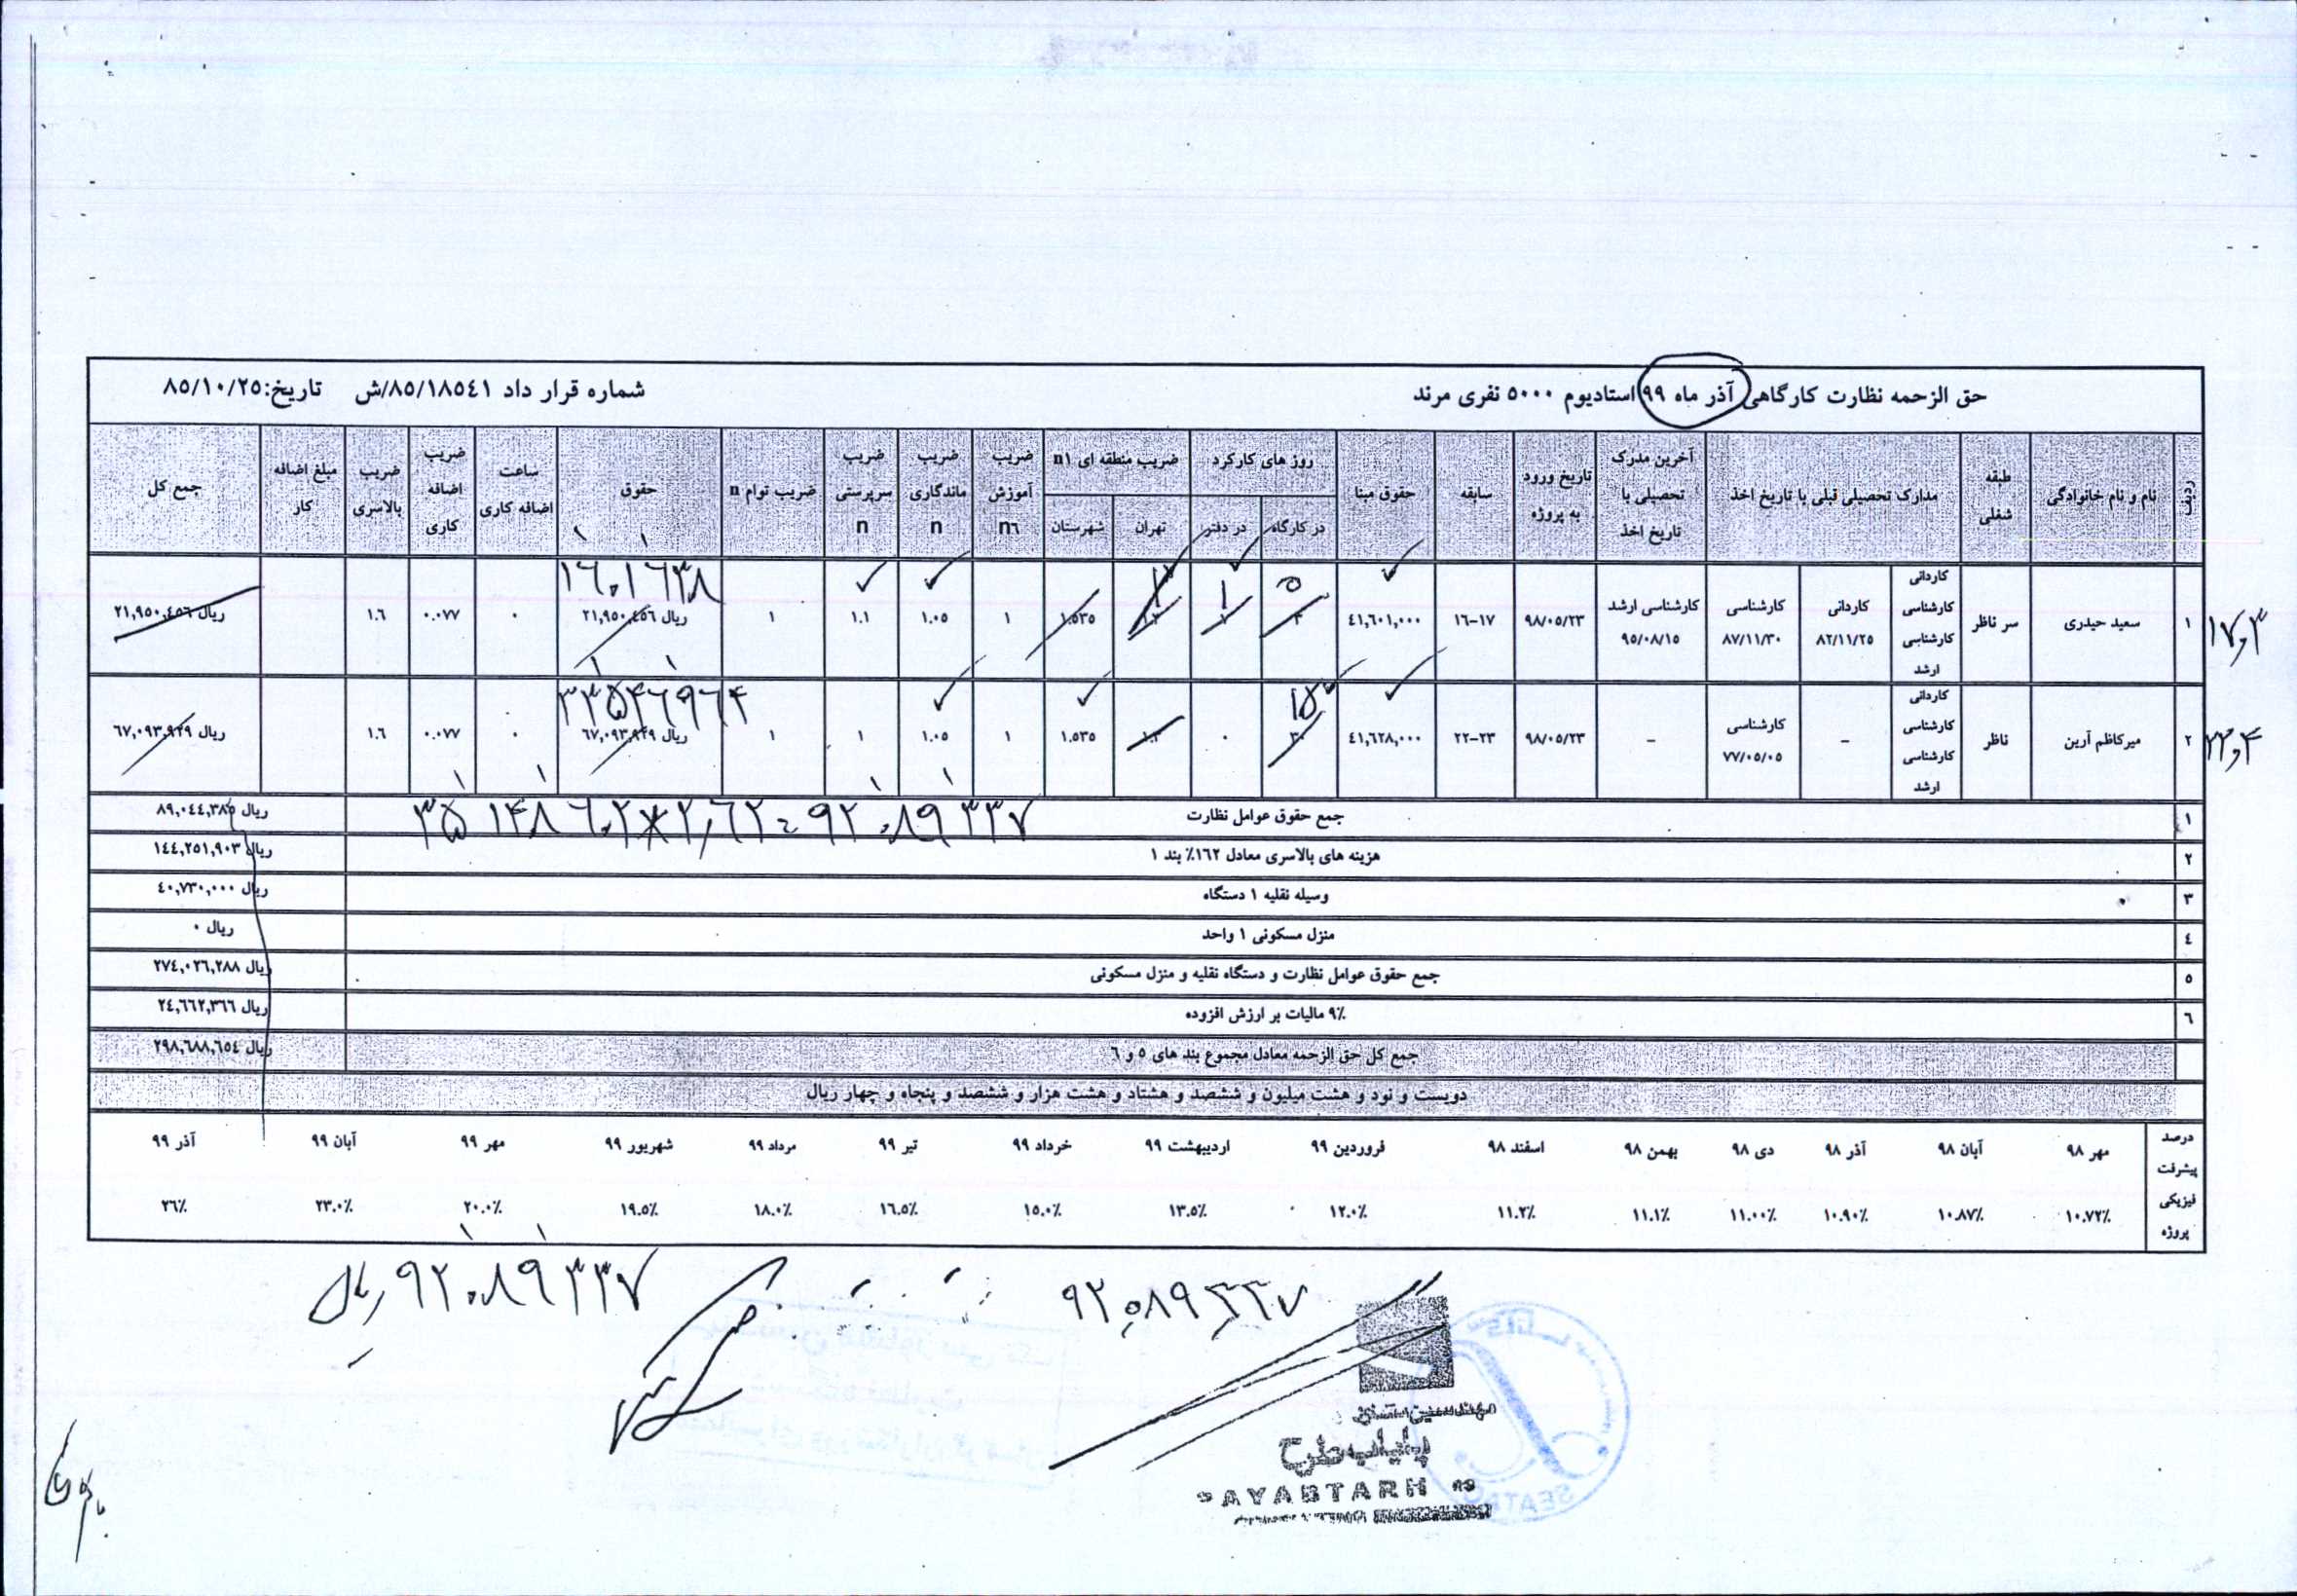 حق الزحمه نظارت کارگاهی آذر ماه ۹۹ استادیوم ۵۰۰۰ نفری مرند شماره قرار داد ۸۵/۱۸۵٤۱/ش تاریخ:۸۵/۱۰/۲۵
ردیف نام و نام خانوادگی طبقه شغلی مدارک تحصیلی قبلی با تاریخ اخذ آخرین مدرک تحصیلی با تاریخ اخذ تاریخ ورود به پروژه سابقه حقوق مبنا روز های کارکرد ضریب منطقه ای n۱ ضریب آموزش n٦ ضریب ماندگاری n ضریب سرپرستی n ضریب توام n حقوق ساعت اضافه کاری ضریب اضافه کاری ضریب بالاسری مبلغ اضافه کار جمع کل
در کارگاه در دفتر تهران شهرستان
۱۷٫۳ ۱ سعید حیدری سر ناظر کاردانی کارشناسی کارشناسی ارشد کاردانی ۸۲/۱۱/۲۵ کارشناسی ۸۷/۱۱/۳۰ کارشناسی ارشد ۹۵/۰۸/۱۵ ۹۸/۰۵/۲۳ ۱٦-۱۷ ٤۱,٦۰۱,۰۰۰ ۵ ۱ ۱.۵۳۵ ۱ ۱.۰۵ ۱.۱ ۱ ۱٦۰۱٦۳۸ ریال ۲۱,۹۵۰,٤۵٦ ۰ ۰.۰۷۷ ۱.٦ ریال ۲۱,۹۵۰,٤۵٦
۲۲٫۴ ۲ میرکاظم آرین ناظر کاردانی کارشناسی کارشناسی ارشد – کارشناسی ۷۷/۰۵/۰۵ – ۹۸/۰۵/۲۳ ۲۲-۲۳ ٤۱,٦۲۸,۰۰۰ ۱۵ ۳۰ ۰ ۱.۲ ۱.۵۳۵ ۱ ۱.۰۵ ۱ ۱ ۳۳۵۴٦۹٦۴ ریال ٦۷,۰۹۳,۹۲۹ ۰ ۰.۰۷۷ ۱.٦ ریال ٦۷,۰۹۳,۹۲۹
۱ جمع حقوق عوامل نظارت ۳۵۱۴۸٦۰۲*۲,٦۲=۹۲۰۸۹۳۳۷ ریال ۸۹,۰٤٤,۳۸۵
۲ هزینه های بالاسری معادل ۱٦۲٪ بند ۱ ریال ۱٤٤,۲۵۱,۹۰۳
۳ وسیله نقلیه ۱ دستگاه ریال ٤۰,۷۳۰,۰۰۰
٤ منزل مسکونی ۱ واحد ریال ۰
۵ جمع حقوق عوامل نظارت و دستگاه نقلیه و منزل مسکونی ریال ۲۷٤,۰۲٦,۲۸۸
٦ ۹٪ مالیات بر ارزش افزوده ریال ۲٤,٦٦۲,۳٦٦
جمع کل حق الزحمه معادل مجموع بند های ۵ و ٦ ریال ۲۹۸,٦۸۸,٦۵٤
دویست و نود و هشت میلیون و ششصد و هشتاد و هشت هزار و ششصد و پنجاه و چهار ریال
درصد پیشرفت فیزیکی پروژه
مهر ۹۸ آبان ۹۸ آذر ۹۸ دی ۹۸ بهمن ۹۸ اسفند ۹۸ فروردین ۹۹ اردیبهشت ۹۹ خرداد ۹۹ تیر ۹۹ مرداد ۹۹ شهریور ۹۹ مهر ۹۹ آبان ۹۹ آذر ۹۹
۱۰.۷۲٪ ۱۰.۸۷٪ ۱۰.۹۰٪ ۱۱.۰۰٪ ۱۱.۱٪ ۱۱.۲٪ ۱۲.۰٪ ۱۳.۵٪ ۱۵.۰٪ ۱٦.۵٪ ۱۸.۰٪ ۱۹.۵٪ ۲۰.۰٪ ۲۳.۰٪ ۲٦٪
۹۲,۰۸۹,۳۳۷
۹۲۰۸۹۳۳۷ ریال
مهندسین مشاور
پایاب طرح
PAYABTARH